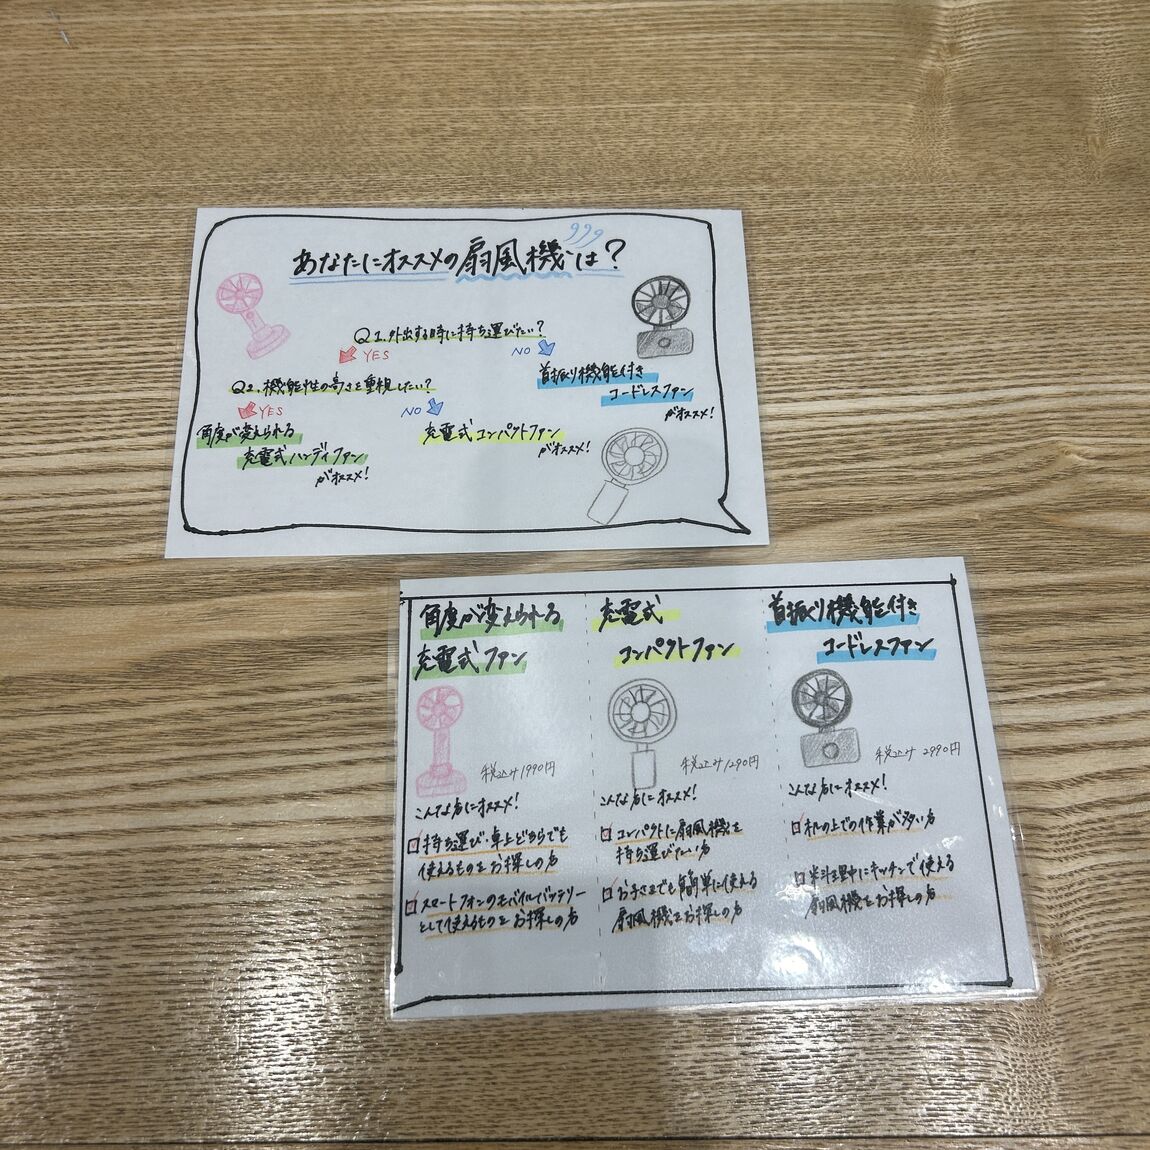 あなたにオススメの扇風機は?
Q1.外出する時に持ち運びたい?
YES
NO
Q2.機能性の高さを重視したい?
首振り機能付き
コードレスファン
がオススメ!
YES
NO
角度が変えられる
充電式ハンディファン
がオススメ!
充電式コンパクトファン
がオススメ!
角度が変えられる
充電式ファン
税込み1990円
こんな方にオススメ!
持ち運び・卓上どちらでも
使えるものをお探しの方
スマートフォンのモバイルバッテリー
として使えるものをお探しの方
充電式
コンパクトファン
税込み1290円
こんな方にオススメ!
コンパクトに扇風機を
持ち運びたい方
お子さまでも簡単に使える
扇風機をお探しの方
首振り機能付き
コードレスファン
税込み2990円
こんな方にオススメ!
机の上での作業が多い方
料理中にキッチンで使える
扇風機をお探しの方